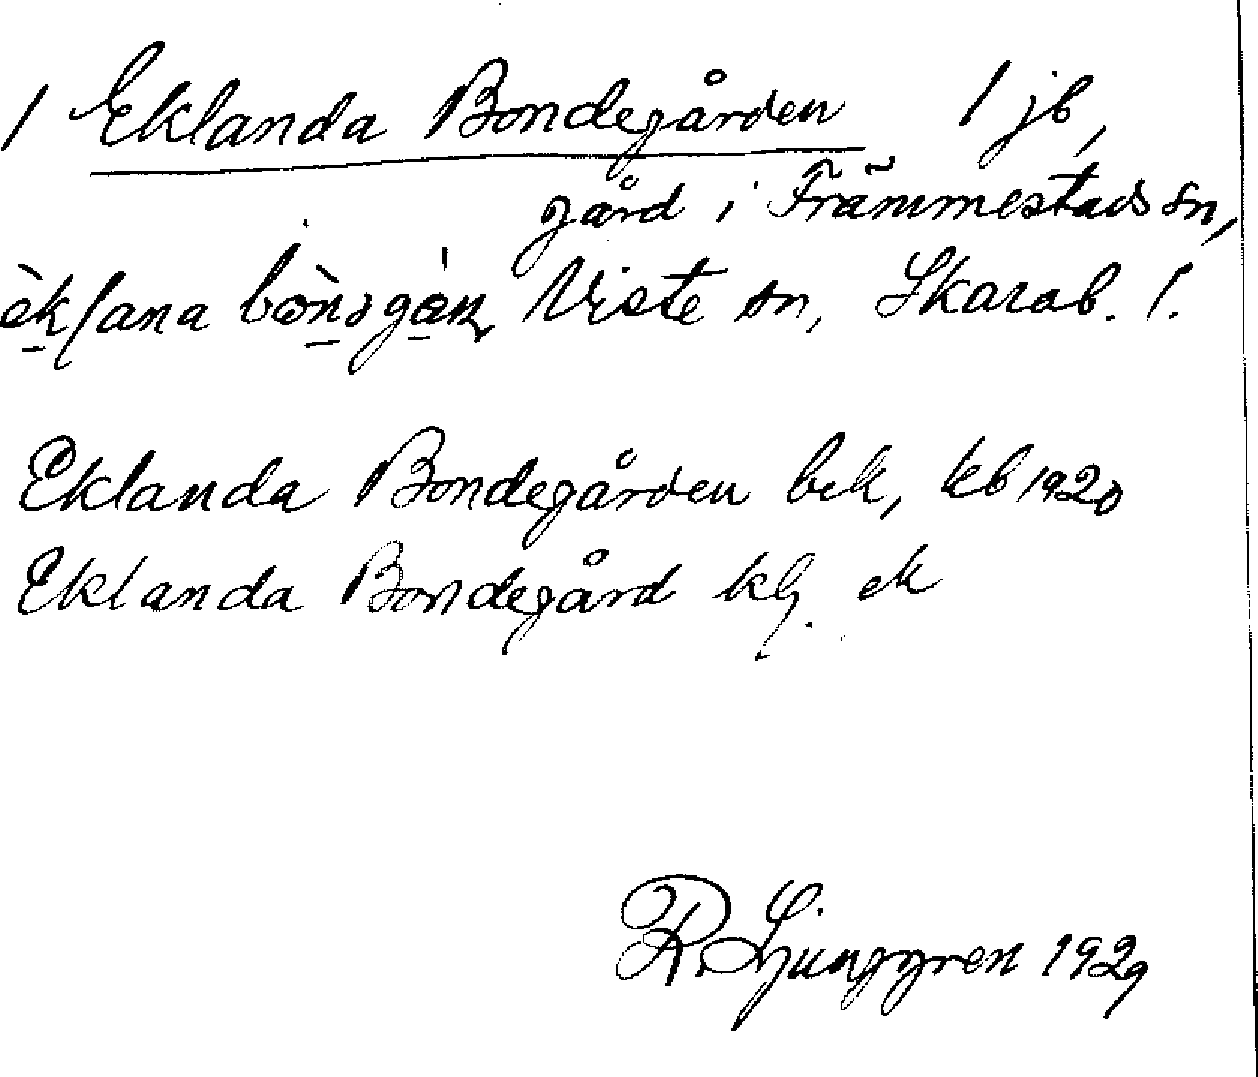 / Eklanda Bondegården 1 jb,
gård i Främmestads sn,
Viste sn, Skarab. l.
Eklanda Bondegården bek, kb 1920
Eklanda Bondegård klg. ek
R. Ljunggren 1929